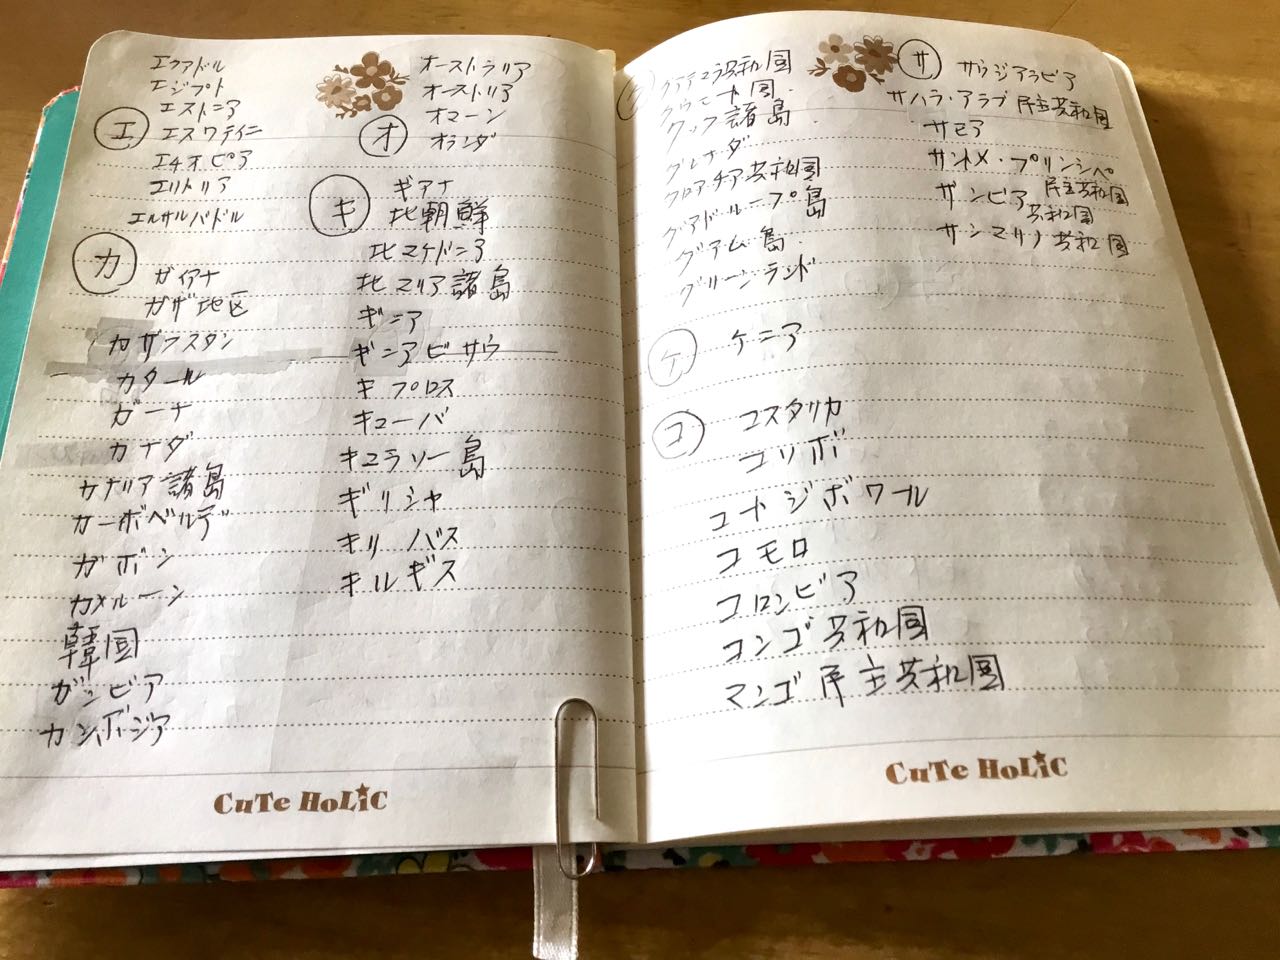 エ
エクアドル
エジプト
エストニア
エスワティニ
エチオピア
エリトリア
エルサルバドル
カ
ガイアナ
ガザ地区
カザフスタン
カタール
ガーナ
カナダ
カナリア諸島
カーボベルデ
ガボン
カメルーン
韓国
ガンビア
カンボジア
オ
オーストラリア
オーストリア
オマーン
オランダ
キ
ギアナ
北朝鮮
北マケドニア
北マリア諸島
ギニア
ギニアビサウ
キプロス
キューバ
キュラソー島
ギリシャ
キリバス
キルギス
CuTe HoLiC
グアテマラ共和国
クウェート国
クック諸島
グレナダ
クロアチア共和国
グアドループ島
グアム島
グリーンランド
ケ
ケニア
コ
コスタリカ
コソボ
コートジボワール
コモロ
コロンビア
コンゴ共和国
マンゴ民主共和国
サ
サウジアラビア
サハラ・アラブ民主共和国
サモア
サントメ・プリンシペ
民主共和国
ザンビア共和国
サンマリノ共和国
CuTe HoLiC